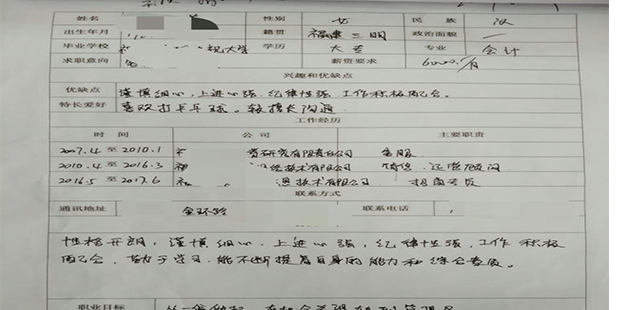 姓名 性别 女 民族 汉
出生年月 籍贯 福建三明 政治面貌
毕业学校 学历 大专 专业 会计
求职意向 薪资要求 6000/月
兴趣和优缺点
优缺点 谨慎细心、上进心强、纪律性强、工作积极配合。
特长爱好 喜欢打乒乓球。较擅长沟通
工作经历
时间 公司 主要职责
2007.4 至 2010.1 有限责任公司 客服
2010.4 至 2016.3 技术有限公司 销售、运营顾问
2016.5 至 2017.6 技术有限公司 招商专员
联系方式
通讯地址 金环路 联系电话
性格开朗，谨慎细心、上进心强，纪律性强，工作积极
配合，勤于学习，能不断提高自身的能力和综合素质。
职业目标